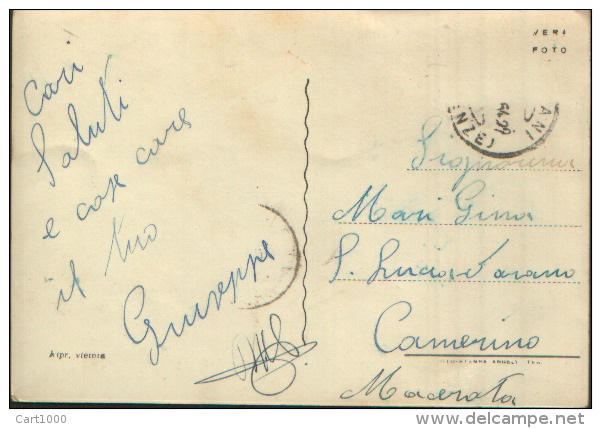 VERA
FOTO
Cari
Saluti
e cose care
il tuo
Giuseppe
Signorina
Mari Gina
S. Lucia
Camerino
Macerata
Ripr. vietata
Cart1000
www.delcampe.net